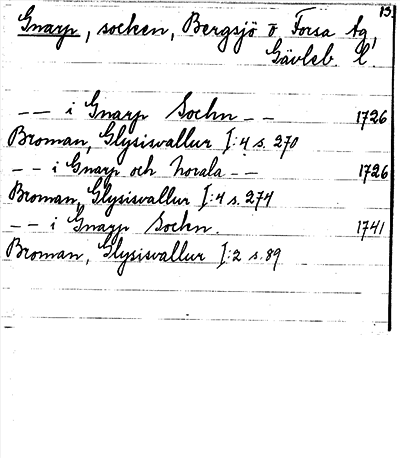 13.
Gnarp, socken, Bergsjö o Forsa tg,
Gävleb. l.
-- i Gnarp Sochn -- 1726
Broman, Glysisvallur I:4 s. 270
-- i Gnarp och Norala -- 1726
Broman, Glysisvallur I:4 s. 274
-- i Gnarp Sochn. 1741
Broman, Glysisvallur I:2 s. 89